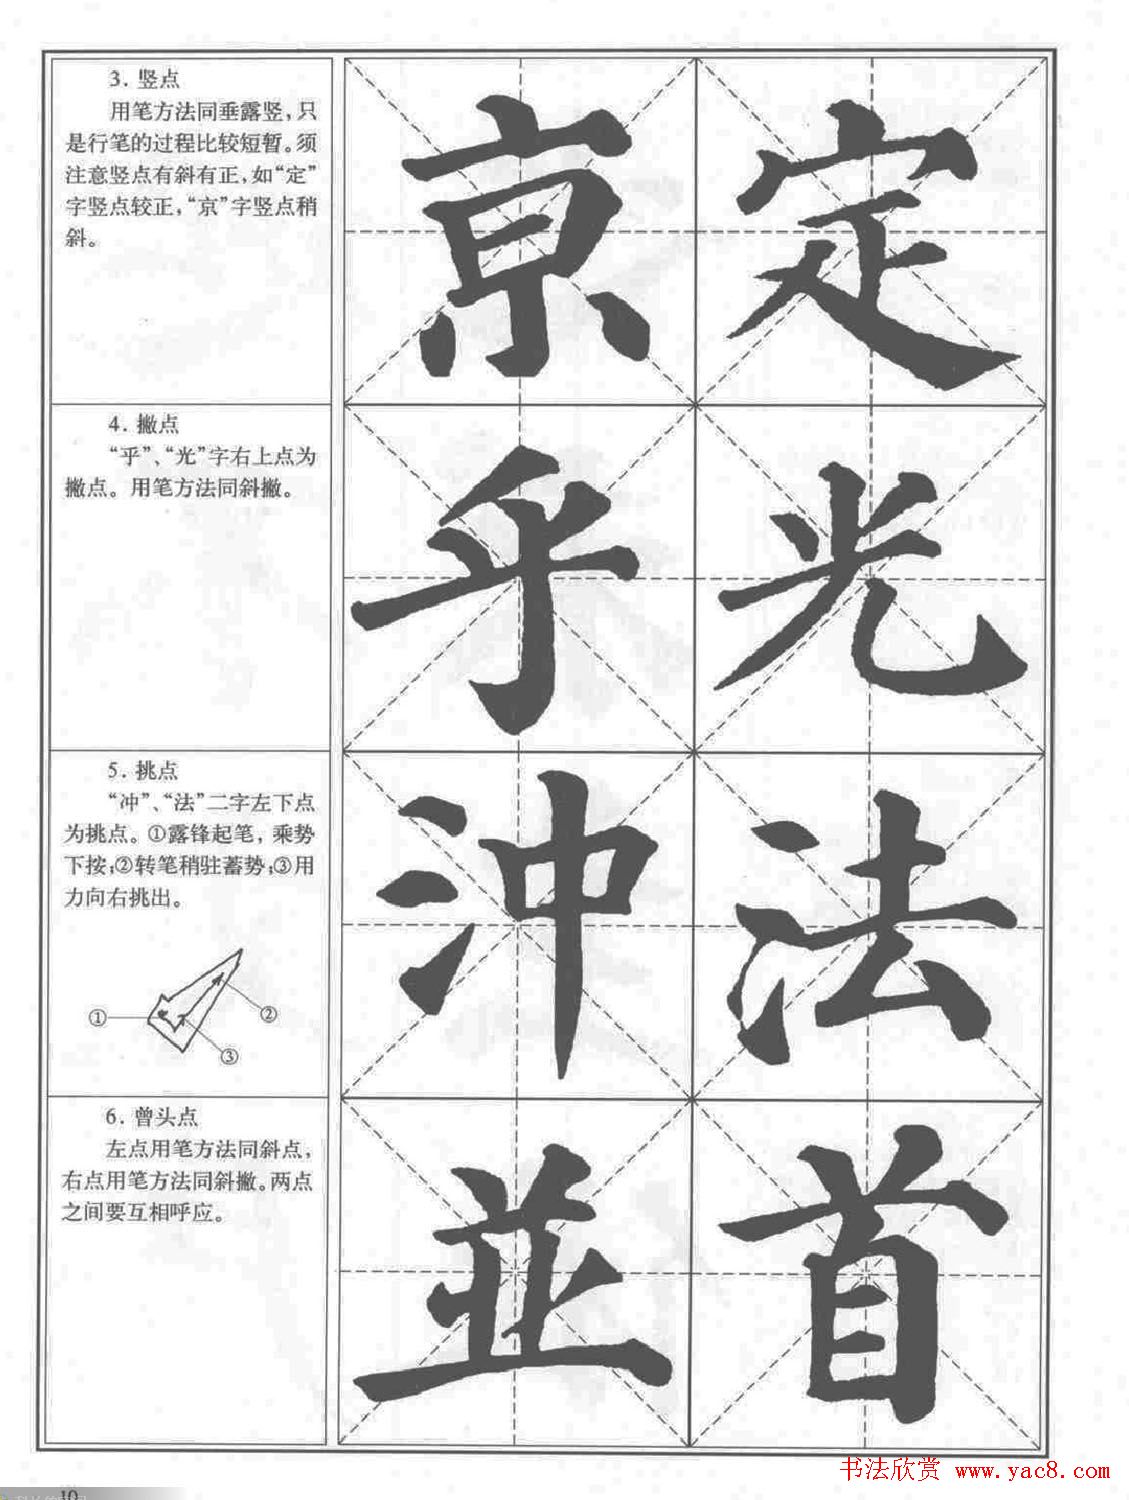 3. 竖点
用笔方法同垂露竖,只
是行笔的过程比较短暂。须
注意竖点有斜有正,如“定”
字竖点较正,“京”字竖点稍
斜。
京 定
4. 撇点
“乎”、“光”字右上点为
撇点。用笔方法同斜撇。
乎 光
5. 挑点
“冲”、“法”二字左下点
为挑点。①露锋起笔,乘势
下按;②转笔稍驻蓄势;③用
力向右挑出。
①
②
③
冲 法
6. 曾头点
左点用笔方法同斜点,
右点用笔方法同斜撇。两点
之间要互相呼应。
並 首
书法欣赏 www.yac8.com
10